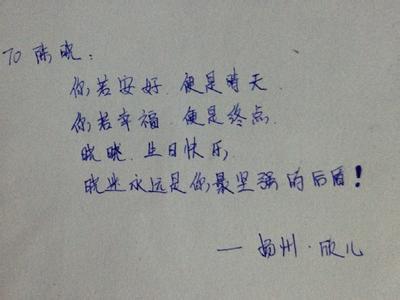 TO 陈晓：
你若安好，便是晴天.
你若幸福，便是终点.
晓晓，生日快乐，
晓迷永远是你最坚强的后盾！
— 扬州·欣儿